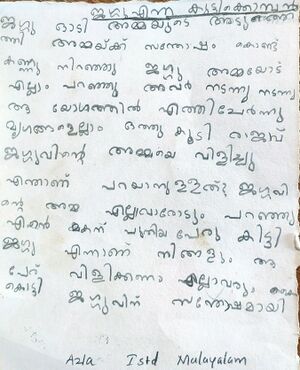 ജഗ്ഗു എന്ന കുട്ടിക്കൊമ്പൻ
ജഗ്ഗു ഓടി അമ്മയുടെ അടുത്തെ
ത്തി അമ്മയ്ക്ക് സന്തോഷം കൊണ്ട്
കണ്ണു നിറഞ്ഞു ജഗ്ഗു അമ്മയോട്
എല്ലാം പറഞ്ഞു അവർ നടന്നു നടന്നു
ആ യോഗത്തിൽ എത്തിചേർന്നു
മൃഗങ്ങളെല്ലാം ഒത്തു കൂടി രാജാവ്
ജഗ്ഗുവിന്റെ അമ്മയെ വിളിച്ചു
എന്താണ് പറയാനുള്ളത് ജഗ്ഗുവി
ന്റെ അമ്മ എല്ലാവരോടും പറഞ്ഞു
എന്റെ മകന് പുതിയ പേരു കിട്ടി
ജഗ്ഗു എന്നാണ് നിങ്ങളും ആ
പേര് വിളിക്കണം എല്ലാവരും കൈ
കൊട്ടി ജഗ്ഗുവിന് സന്തോഷമായി
Azla Istd Malayalam